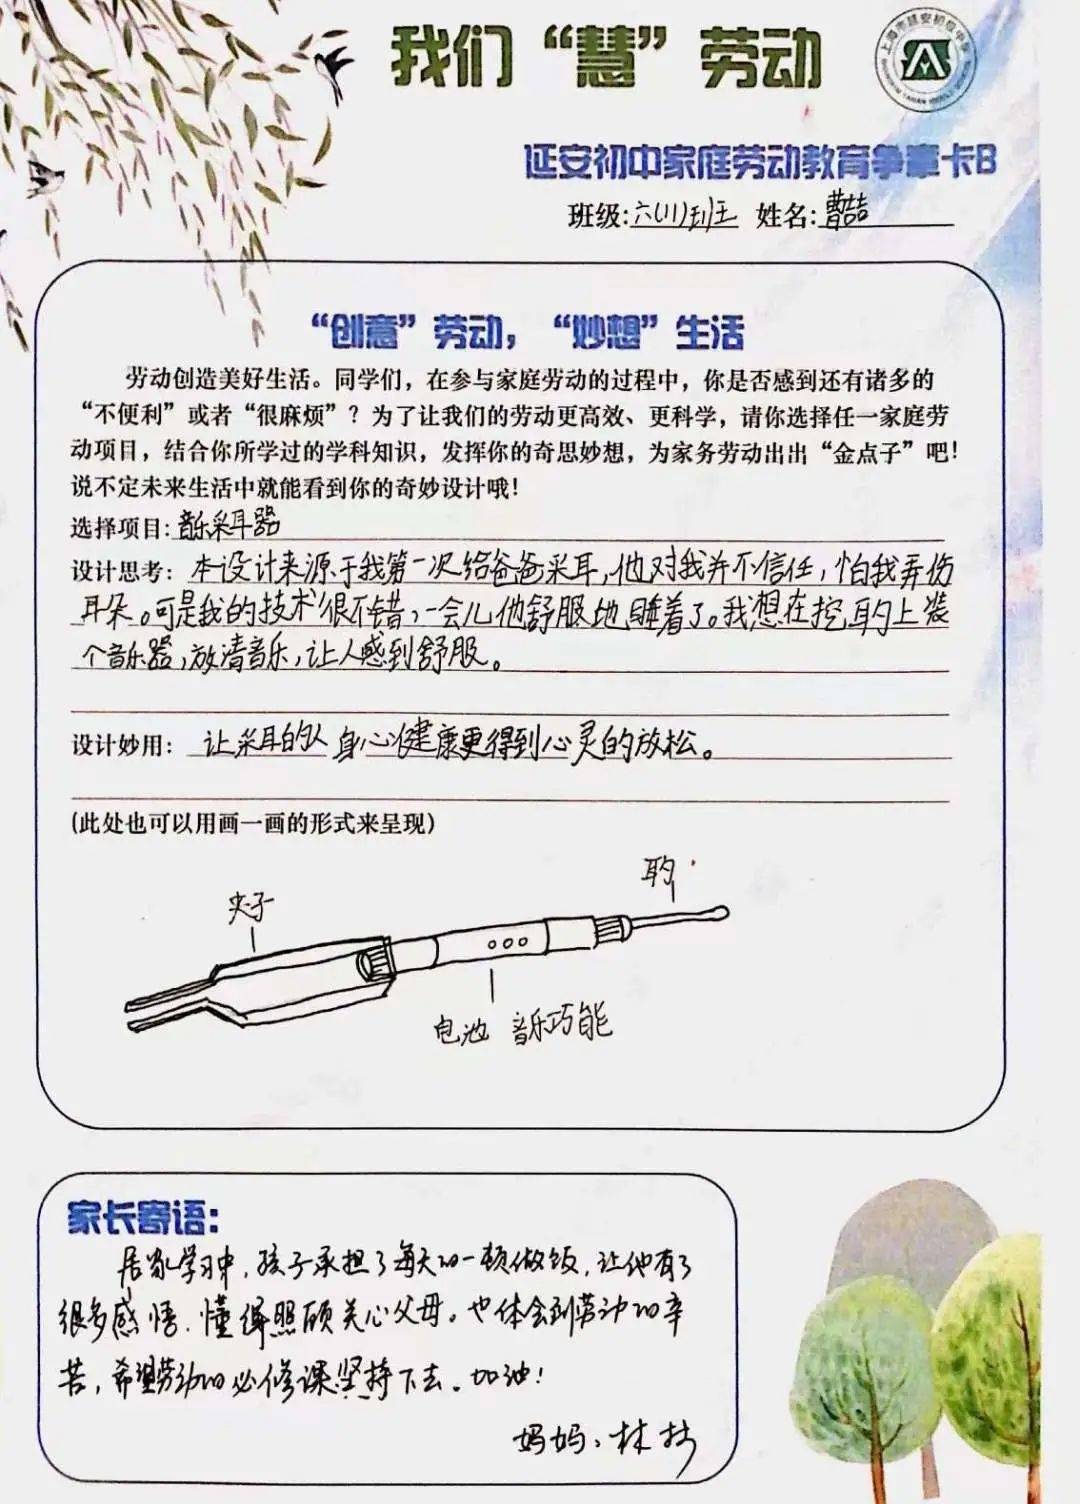 我们“慧”劳动
延安初中家庭劳动教育争章卡B
班级:六(11)班 姓名:曹喆
“创意”劳动，“妙想”生活
劳动创造美好生活。同学们，在参与家庭劳动的过程中，你是否感到还有诸多的
“不便利”或者“很麻烦”？为了让我们的劳动更高效、更科学，请你选择任一家庭劳
动项目，结合你所学过的学科知识，发挥你的奇思妙想，为家务劳动出出“金点子”吧！
说不定未来生活中就能看到你的奇妙设计哦！
选择项目:音乐采耳器
设计思考：本设计来源于我第一次给爸爸采耳，他对我并不信任，怕我弄伤
耳朵。可是我的技术很不错，一会儿他舒服地睡着了。我想在挖耳勺上装
个音乐器，放清音乐，让人感到舒服。
设计妙用：让采耳的人身心健康更得到心灵的放松。
(此处也可以用画一画的形式来呈现)
耳勺
夹子
电池 音乐巧能
家长寄语：
居家学习中，孩子承担了每天的一顿做饭，让他有了
很多感悟，懂得照顾关心父母。也体会到劳动的辛
苦，希望劳动的必修课坚持下去。加油！
妈妈：林